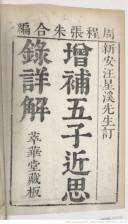 周程張朱合編
新安汪星溪先生訂
增補五子近思
錄詳解
萃華堂藏板